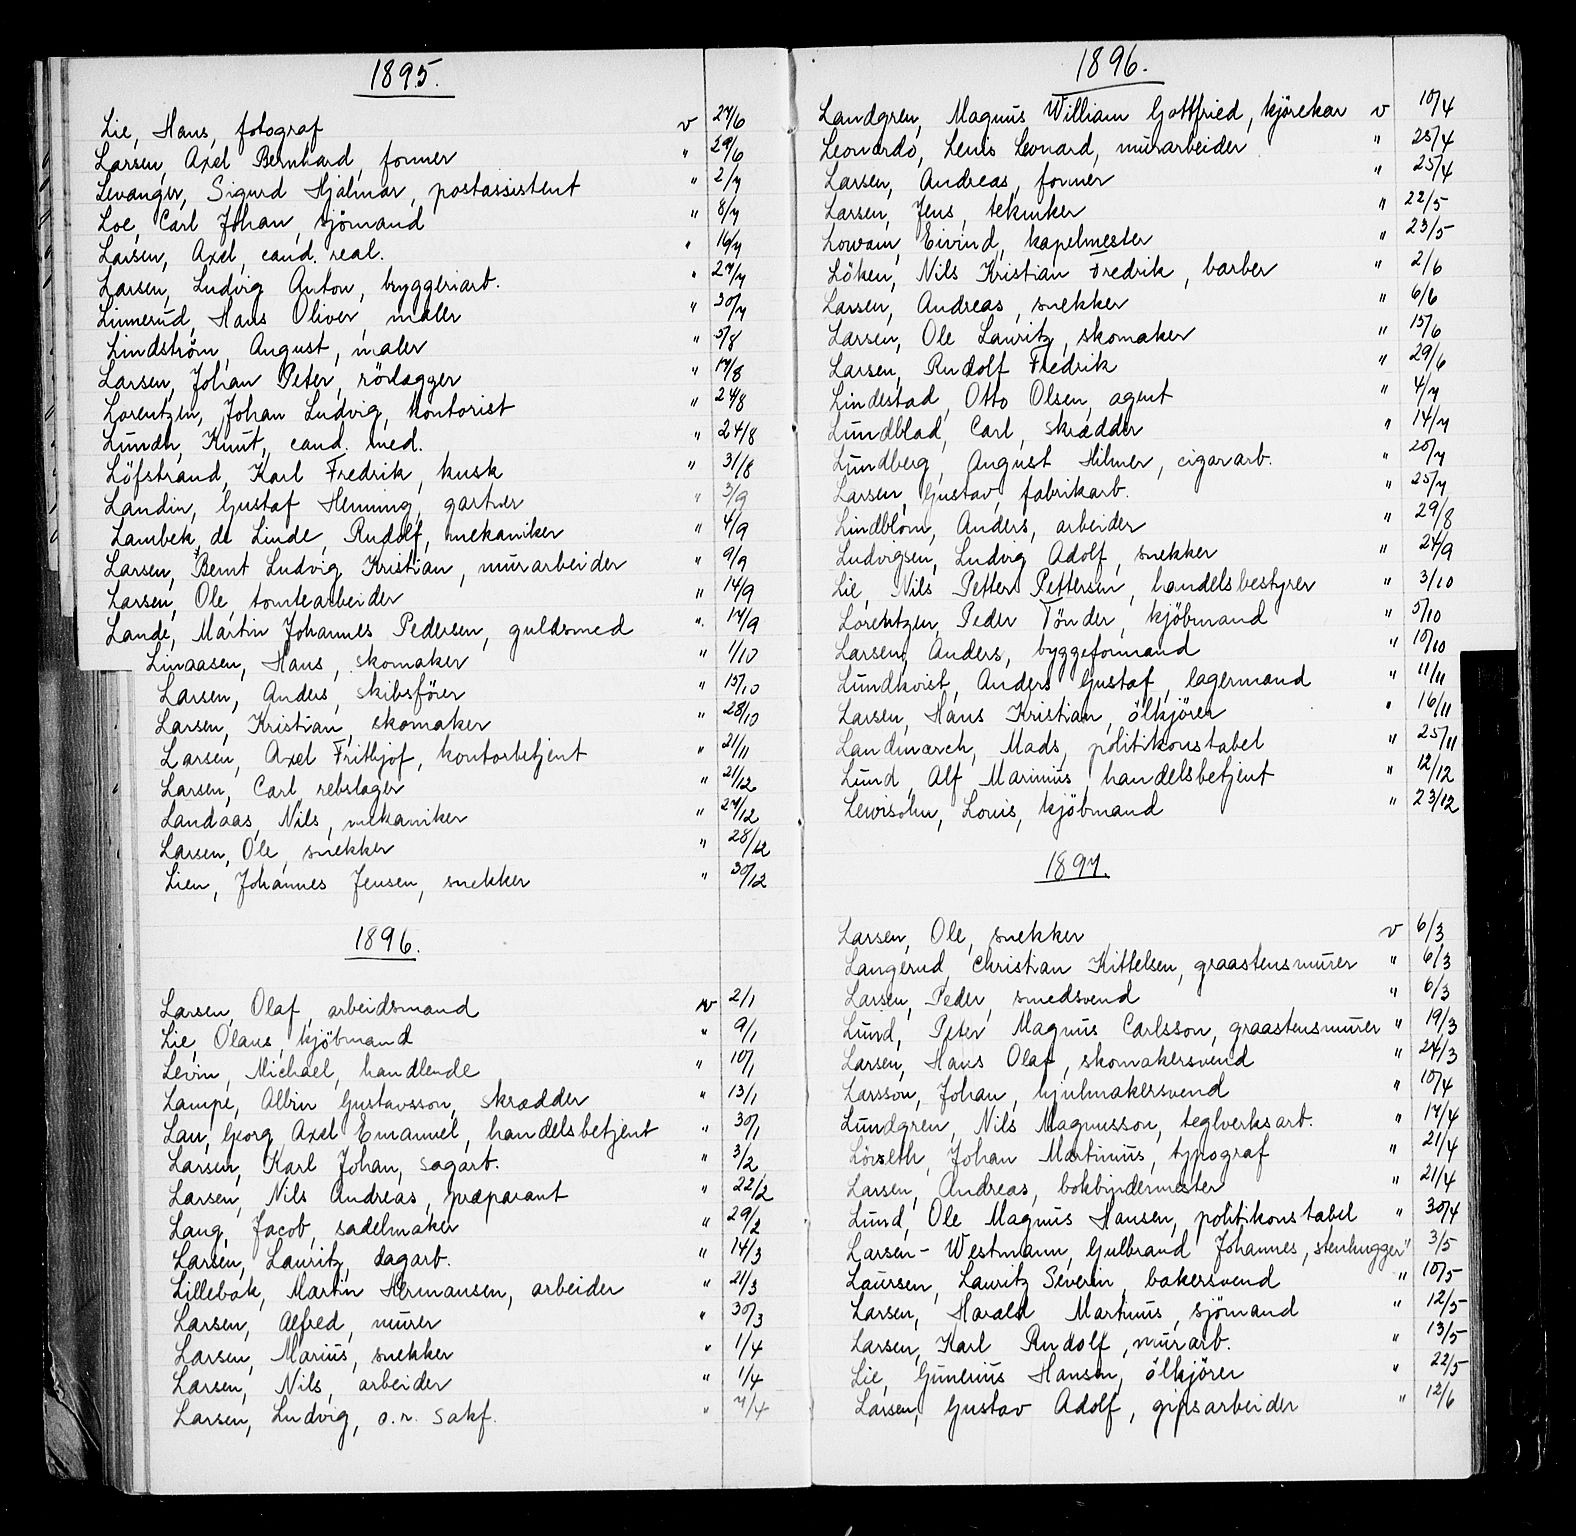 1895.
Lie, Hans, fotograf v 27/6
Larsen, Axel Bernhard, former " 29/6
Levanger, Sigurd Hjalmar, postassistent " 2/7
Loe, Carl Johan, sjömand " 8/7
Larsen, Axel, cand. real. " 16/7
Larsen, Ludvig Anton, bryggeriarb. " 27/7
Linnerud, Hans Oliver, maler " 30/7
Lindström, August, maler " 5/8
Larsen, Johan Peter, rörlægger " 17/8
Lorentzen, Johan Ludvig, kontorist " 24/8
Lundh, Knut, cand. med. " 24/8
Löfstrand, Karl Fredrik, kusk " 31/8
Landin, Gustaf Henning, gartner " 3/9
Lambek, de Linde, Rudolf, mekaniker " 4/9
Larsen, Bernt Ludvig Kristian, murarbeider " 9/9
Larsen, Ole, tomtearbeider " 14/9
Lande, Martin Johannes Pedersen, guldsmed " 14/9
Linaasen, Hans, skomaker " 1/10
Larsen, Anders, skibsförer " 15/10
Larsen, Kristian, skomaker " 28/10
Larsen, Axel Frithjof, kontorbetjent " 21/11
Larsen, Carl rebslager " 21/12
Landaas, Nils, mekaniker " 27/12
Larsen, Ole, snekker " 28/12
Lien, Johannes Jensen, snekker " 30/12
1896.
Larsen, Olaf, arbeidsmand v 2/1
Lie, Olaus, kjöbmand " 9/1
Levin, Michael, handlende " 10/1
Lampe, Albin Gustavsson, skrædder " 13/1
Lau, Georg Axel Emanuel, handelsbetjent " 30/1
Larsen, Karl Johan, sagarb. " 3/2
Larsen, Nils Andreas, præparant " 22/2
Lang, Jacob, sadelmaker " 29/2
Larsen, Lauritz, dagarb. " 14/3
Lillebæk, Martin Hermansen, arbeider " 21/3
Larsen, Alfred, murer " 30/3
Larsen, Marius, snekker " 1/4
Larsen, Nils, arbeider " 1/4
Larsen, Ludvig, o.r. sakf. " 7/4
1896.
Landgren, Magnus William Gottfried, kjörekar v 10/4
Leonardo, Lenis Leonard, murarbeider " 25/4
Larsen, Andreas, former " 25/4
Larsen, Jens, tekniker " 22/5
Eivind, kapelmester " 23/5
Löken, Nils Kristian Fredrik, barber " 2/6
Larsen, Andreas, snekker " 6/6
Larsen, Ole Lauritz, skomaker " 15/6
Larsen, Rudolf Fredrik " 29/6
Lindestad, Otto Olsen, agent " 4/7
Lundblad, Carl, skrædder " 14/7
Lundberg, August Hilmer, cigararb. " 20/7
Larsen, Gustav, fabrikarb. " 25/7
Lindblom, Anders, arbeider " 29/8
Ludvigsen, Ludvig Adolf, snekker " 24/9
Lie, Nils Petter Pettersen, handelsbestyrer " 3/10
Lorentzen, Peder Tönder, kjöbmand " 5/10
Larsen, Anders, byggeformand " 10/10
Lundkvist, Anders Gustaf, lagermand " 11/11
Larsen, Hans Kristian, ölkjörer " 16/11
Landmarch, Mads, politikonstabel " 25/11
Lund, Alf Marinius, handelsbetjent " 12/12
Lewisohn, Louis, kjöbmand " 23/12
1897.
Larsen, Ole, snekker v 6/3
Langerud, Christian Kittelsen, graastensmurer " 6/3
Larsen, Peder, smedsvend " 6/3
Lund, Peter Magnus Carlsson, graastensmurer " 19/3
Larsen, Hans Olaf, skomakersvend " 24/3
Larsson, Johan, hjulmakersvend " 10/4
Lundgren, Nils Magnusson, teglverksarb. " 17/4
Löiseth, Johan Martinius, typograf " 21/4
Larsen, Andreas, bokbindermester " 21/4
Lund, Ole Magnus Hansen, politikonstabel " 30/4
Larsen-Westmann, Gulbrand Johannes, stenhugger " 3/5
Laursen, Lauritz Severin, bakersvend " 10/5
Larsen, Harald Martinus, sjömand " 12/5
Larsen, Karl Rudolf, murarb. " 13/5
Lie, Gunerius Hansen, ölkjörer " 22/5
Larsen, Gustav Adolf, gipsarbeider " 12/6